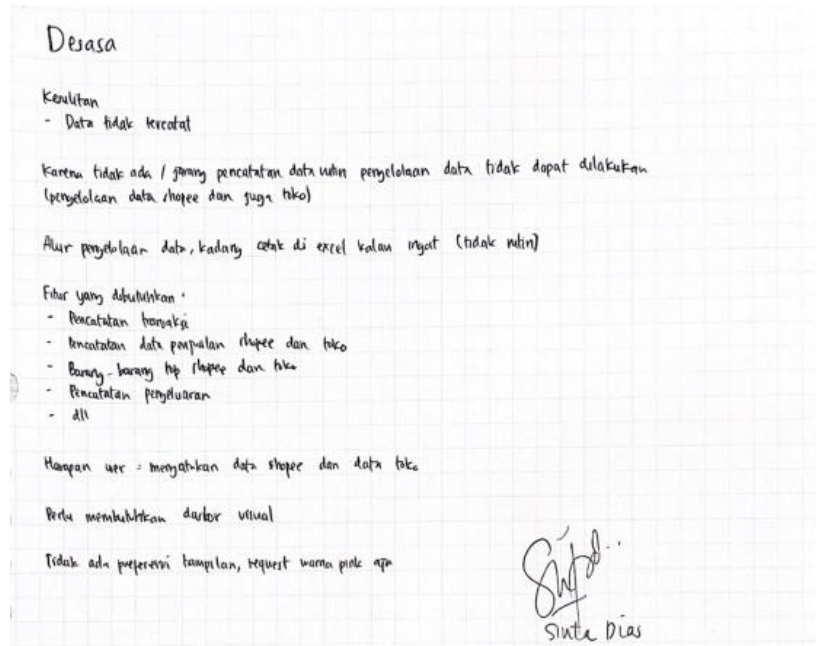 Desasa
Kesulitan
- Data tidak tercatat
Karena tidak ada / jarang pencatatan data rutin pengelolaan data tidak dapat dilakukan
(pengelolaan data shopee dan juga toko)
Alur pengelolaan data, kadang cetak di excel kalau ingat (tidak rutin)
Fitur yang dibutuhkan :
- Pencatatan transaksi
- Pencatatan data penjualan shopee dan toko
- Barang-barang top shopee dan toko
- Pencatatan pengeluaran
- dll
Harapan user = menyatukan data shopee dan data toko
Perlu membutuhkan dasbor visual
Tidak ada preferensi tampilan, request warna pink aja
Sinta Dias